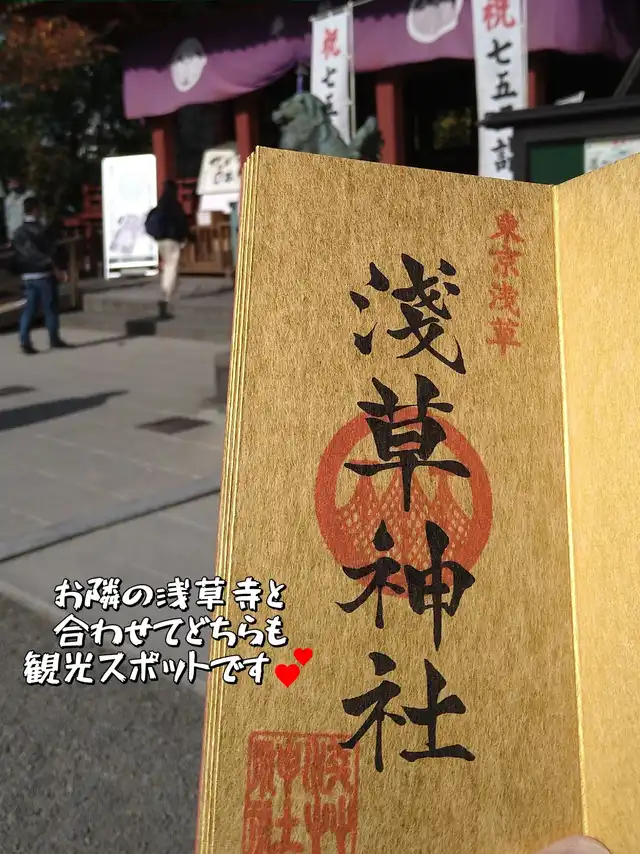 祝七五
祝七五三詣
東京浅草
淺草神社
お隣の浅草寺と
合わせてどちらも
観光スポットです
浅草
神社